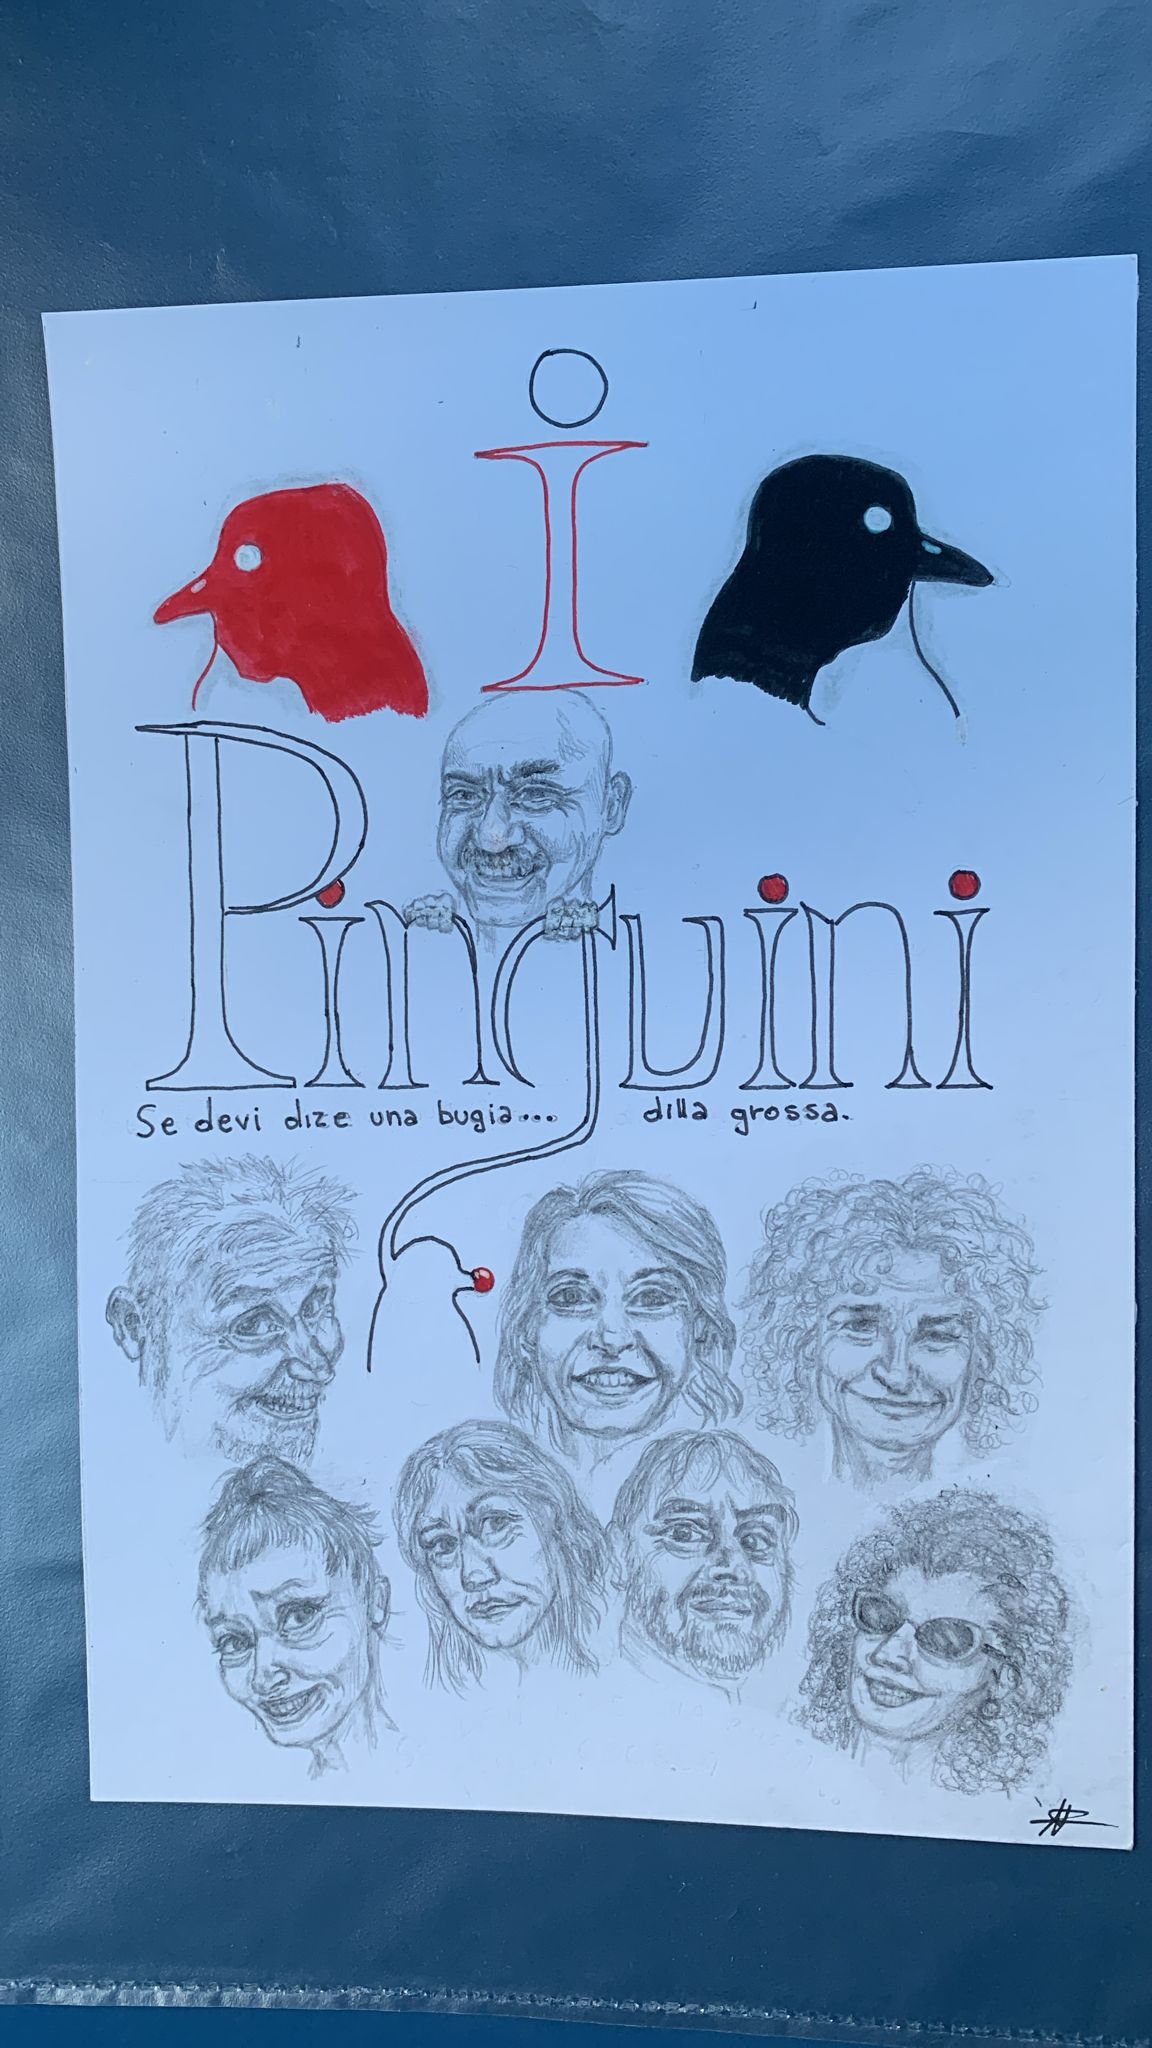 i
Pinguini
Se devi dire una bugia... dilla grossa.